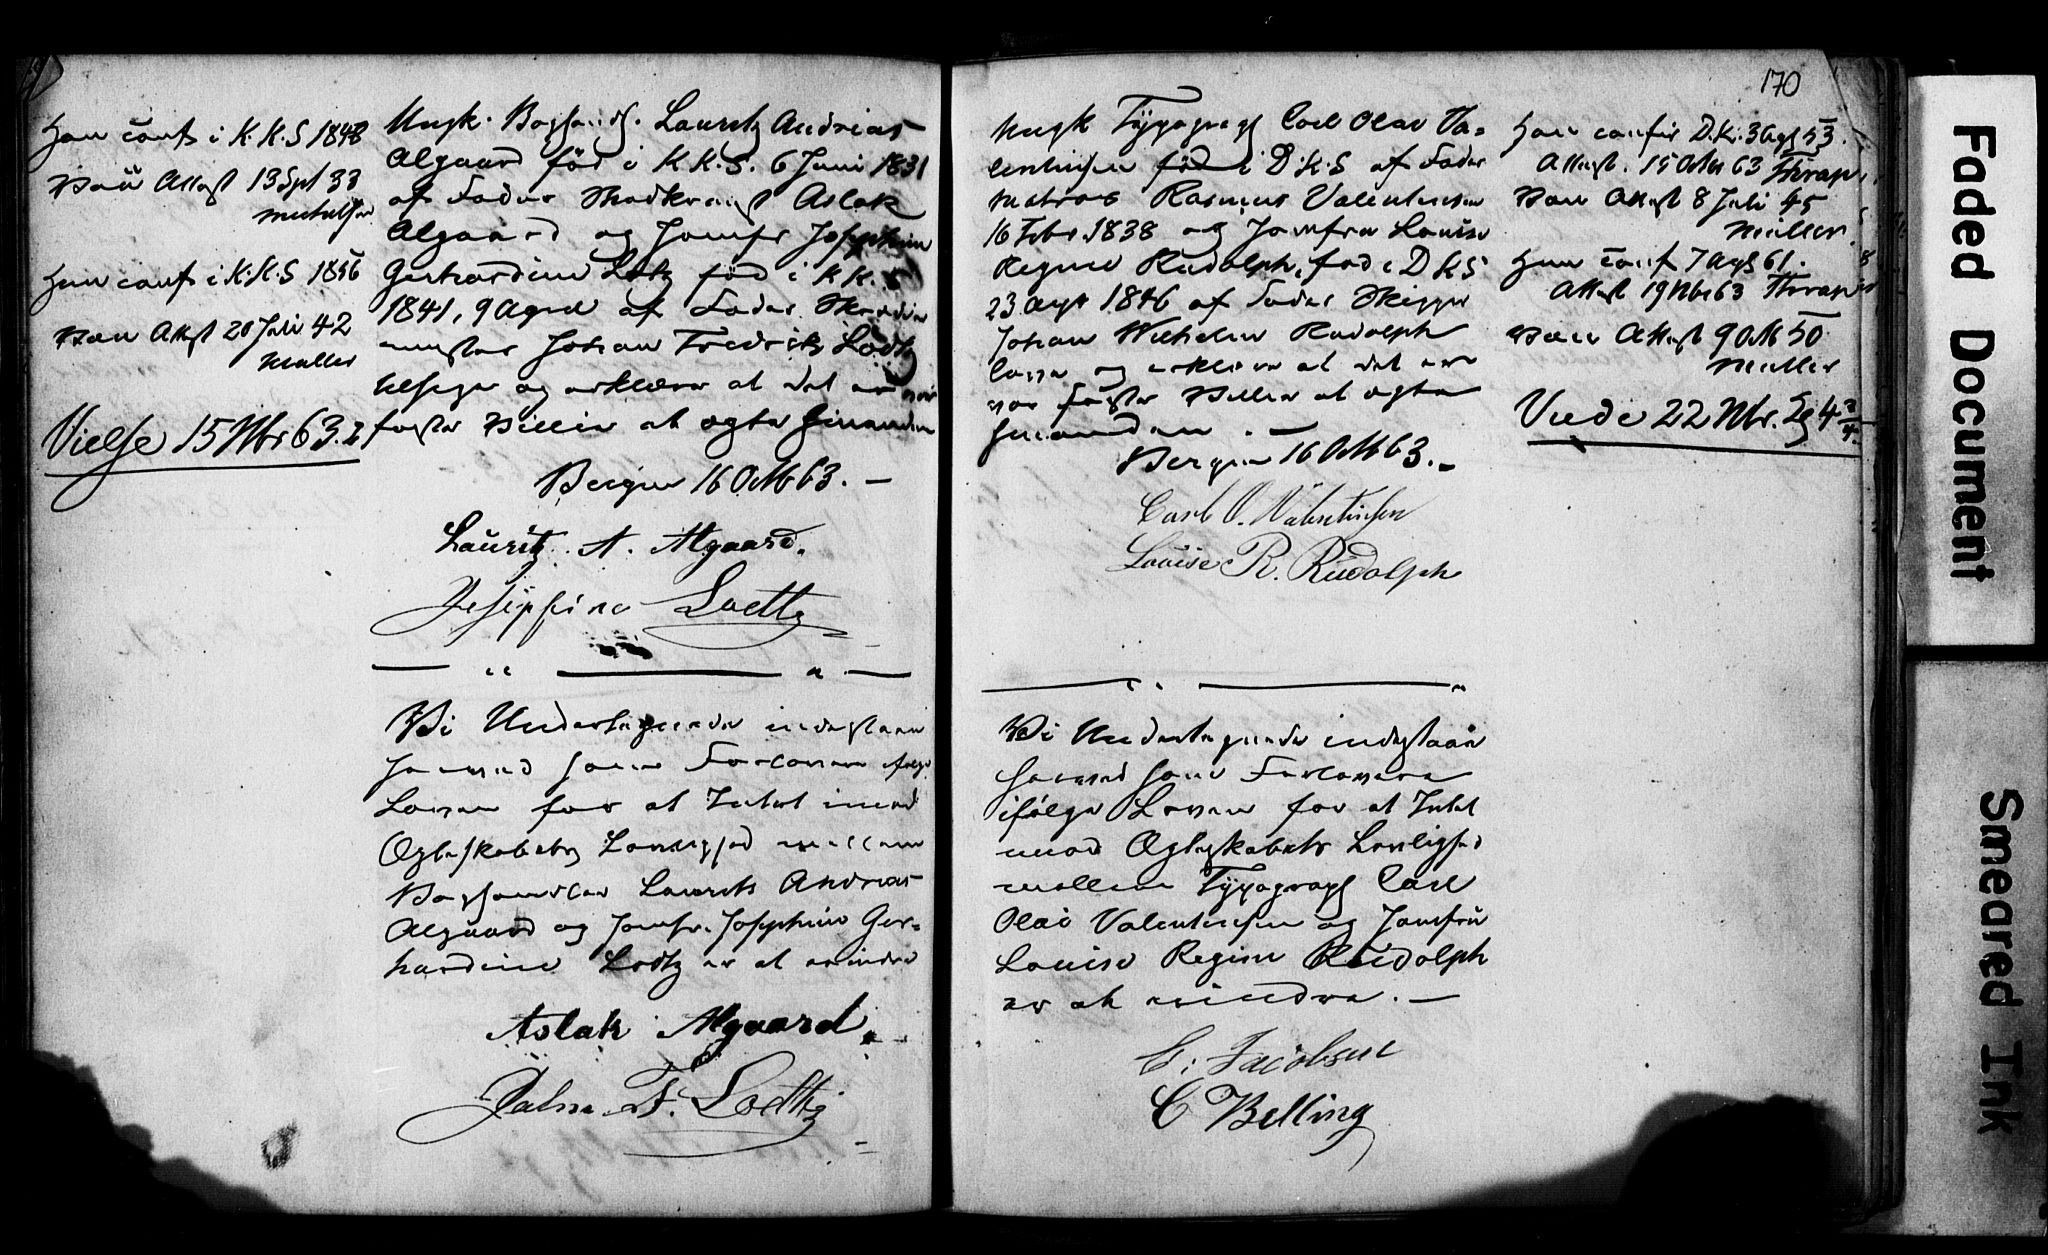 Han conf i K.K.S 1848
Vac Attest 13 Sept 33
Michelsen
Hun conf i K.K.S 1856
Vac Attest 20 Juli 42
Müller
Vielse 15 Nbr 63.
Ungk. Boghandl. Lauritz Andreas
Algaard fød i K.K.S. 6 Juni 1831
af Fader Aslak
Algaard og Jomfr Josephine
Gerhardine Lotz fød i K.K.S
1841, 9 April af Fader Skrædder
mester Johan Fredrik Lodtz
og erklære at det er vor
faste Villie at ægte hinanden
Bergen 16 Octb 63. —
Lauritz. A. Algaard.
Josephine Loedtz
Vi Undertegnede indestaae
herved som Forlovere ifølge
Loven for at Intet imod
Ægteskabets Lovlighed mellem
Boghandler Laurits Andreas
Algaard og Jomfr. Josephine Ger-
hardine Lodtz er at erindre
Aslak Algaard.
Johan F. Loedtz
170
Ungk Typograph Carl Olai Va-
lentinsen fød i D.K.S af Fader
Matros Rasmus Valentinsen
16 Febr. 1838 og Jomfru Louise
Regine Rudolph, fød i D K S
23 Augt 1846 af Fader Skipper
Johan Wilhelm Rudolph
love og erklære at det er
vor faste Villie at ægte
hinanden. —
Bergen 16 Octb 63. —
Carl O. Valentinsen
Louise R. Rudolph
Vi Undertegnede indestaae
herved som Forlovere
ifølge Loven for at Intet
imod Ægteskabets Lovlighed
mellem Typograph Carl
Olai Valentinsen og Jomfru
Louise Regine Rudolph
er at erindre. —
C. Jacobsen
C Belling
Han confir D.K. 3 Aug 53.
Attest. 15 Octbr 63 Thrap
Vac Attest 8 Juli 45
Müller.
Hun conf 7 Aug 61.
Attest 19 Nbr 63 Thrap
Vac Attest 9 Octb 50
Müller
Viede 22 Nbr.
Faded Document
Smeared Ink